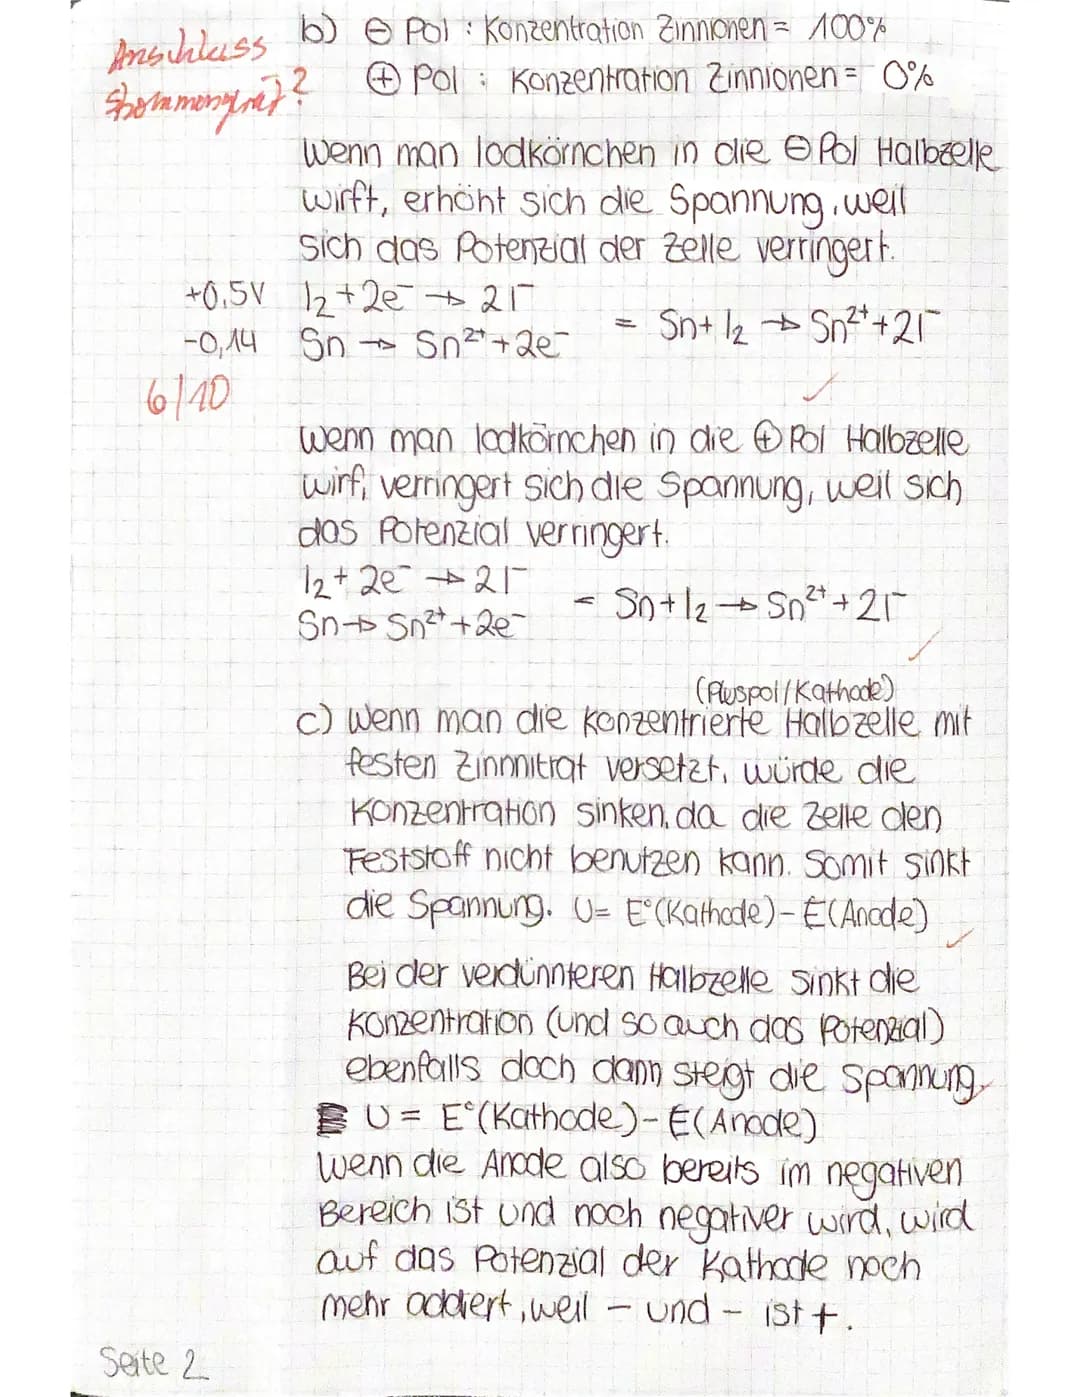 Anschluss
b) ⊖ Pol : Konzentration Zinnionen = 100%
⊕ Pol : Konzentration Zinnionen = 0%
Wenn man Iodkörnchen in die ⊖ Pol Halbzelle
wirft, erhöht sich die Spannung, weil
sich das Potenzial der Zelle verringert.
+0,5V I₂ + 2e⁻ → 2I⁻
-0,14 Sn → Sn²⁺ + 2e⁻
= Sn + I₂ → Sn²⁺ + 2I⁻
6/10
Wenn man Iodkörnchen in die ⊕ Pol Halbzelle
wirf, verringert sich die Spannung, weil sich
das Potenzial verringert.
I₂ + 2e⁻ → 2I⁻
Sn → Sn²⁺ + 2e⁻
= Sn + I₂ → Sn²⁺ + 2I⁻
(Pluspol/Kathode)
c) Wenn man die konzentrierte Halbzelle mit
festen Zinnnitrat versetzt, würde die
Konzentration sinken, da die Zelle den
Feststoff nicht benutzen kann. Somit sinkt
die Spannung. U = E°(Kathode) - E(Anode)
Bei der verdünnteren Halbzelle sinkt die
Konzentration (und so auch das Potenzial)
ebenfalls doch dann steigt die Spannung,
U = E°(Kathode) - E(Anode)
Wenn die Anode also bereits im negativen
Bereich ist und noch negativer wird, wird
auf das Potenzial der Kathode noch
mehr addiert, weil - und - ist +.
Seite 2